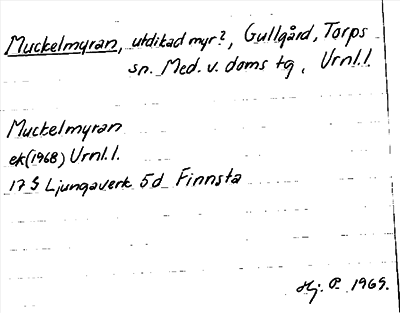 Muckelmyran, utdikad myr?, Gullgård, Torps
sn. Med. v. doms tg, Vrnl.l.
Muckelmyran
ek(1968) Vrnl.l.
17 G Ljungaverk 5d Finnsta
Hj. P. 1969.